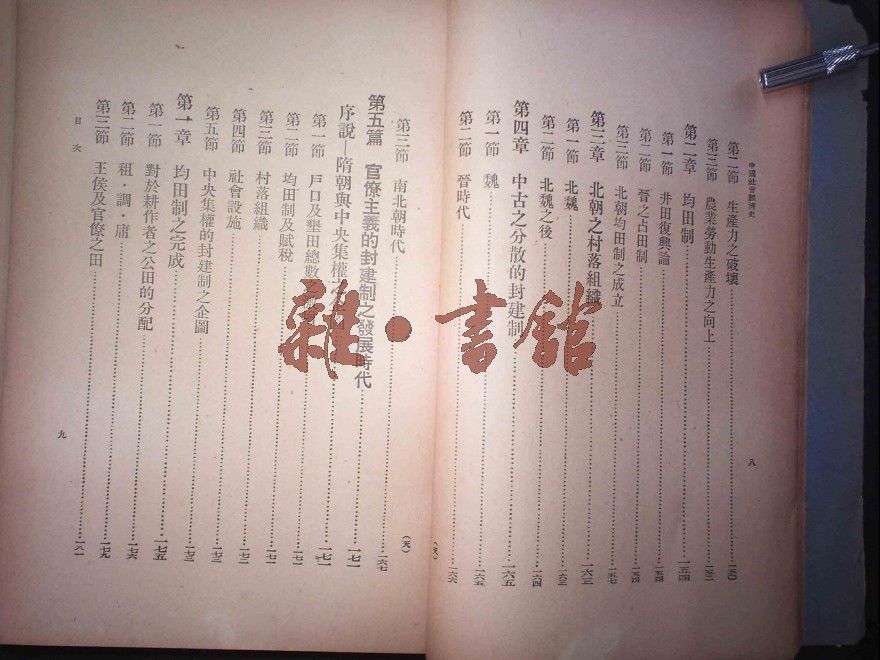 中國社會經濟史
第二節 生產力之破壞……一五〇
第三節 農業勞動生產力之向上……一五二
第二章 均田制……一五四
第一節 井田復興論……一五四
第二節 晉之占田制……一五四
第三節 北朝均田制之成立……一五七
第三章 北朝之村落組織……一六三
第一節 北魏……一六三
第二節 北魏之後……一六四
第四章 中古之分散的封建制……一六五
第一節 魏……一六五
第二節 晉時代……一六六
八
第三節 南北朝時代……一六七
第五篇 官僚主義的封建制之發展時代
序說—隋朝與中央集權……一七一
第一節 戶口及墾田總數之……一七一
第二節 均田制及賦稅……一七一
第三節 村落組織……一七二
第四節 社會設施……一七二
第五節 中央集權的封建制之企圖……一七三
第一章 均田制之完成……一七五
第一節 對於耕作者之公田的分配……一七五
第二節 租·調·庸……一七六
第三節 王侯及官僚之田……一七九
目次
九
雜·書館